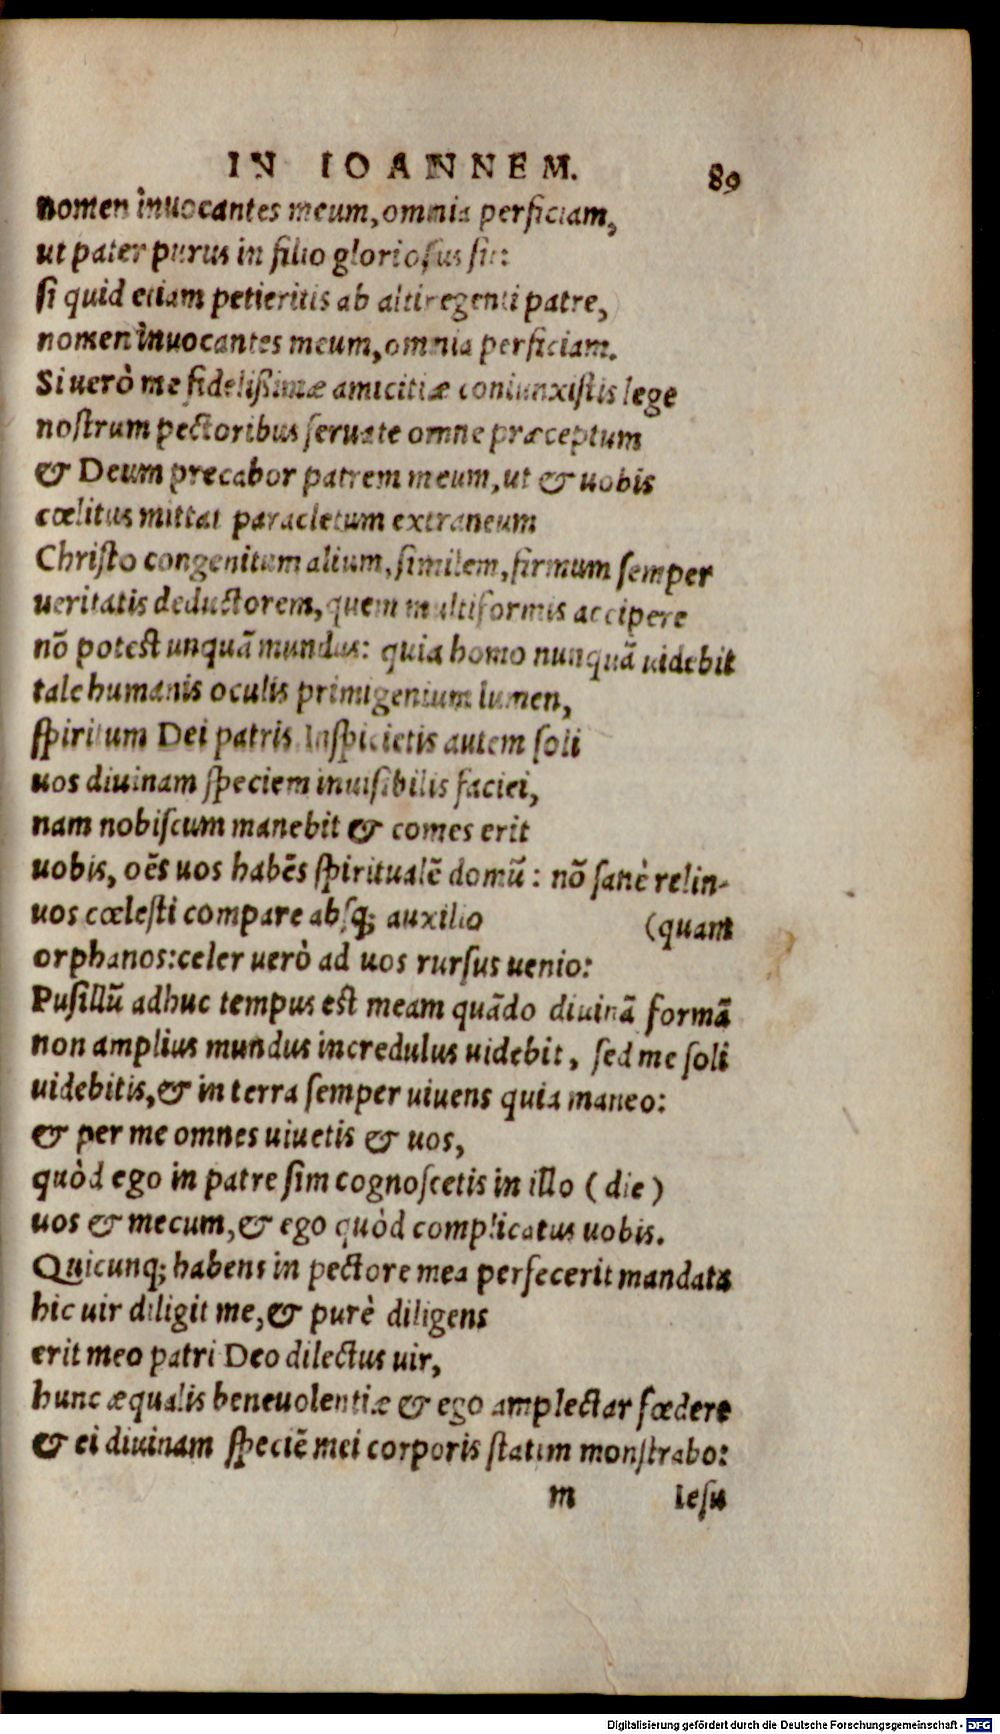 IN IOANNEM. 89
nomen inuocantes meum, omnia perficiam,
ut pater purus in filio gloriosus sit:
si quid etiam petieritis ab altiregenti patre,
nomen inuocantes meum, omnia perficiam.
Si uerò me fidelißimæ amicitiæ coniunxistis lege
nostrum pectoribus seruate omne præceptum
& Deum precabor patrem meum, ut & uobis
cœlitus mittat paracletum extraneum
Christo congenitum alium, similem, firmum semper
ueritatis deductorem, quem multiformis accipere
nõ potest unquã mundus: quia homo nunquã uidebit
tale humanis oculis primigenium lumen,
spiritum Dei patris. Inspicietis autem soli
uos diuinam speciem inuisibilis faciei,
nam nobiscum manebit & comes erit
uobis, oẽs uos habẽs spiritualẽ domũ: nõ sanè relin-
uos cœlesti compare absq; auxilio (quam
orphanos: celer uerò ad uos rursus uenio:
Pusillũ adhuc tempus est meam quãdo diuinã formã
non amplius mundus incredulus uidebit, sed me soli
uidebitis, & in terra semper uiuens quia maneo:
& per me omnes uiuetis & uos,
quòd ego in patre sim cognoscetis in illo (die)
uos & mecum, & ego quòd complicatus uobis.
Quicunq; habens in pectore mea perfecerit mandata
hic uir diligit me, & purè diligens
erit meo patri Deo dilectus uir,
hunc æqualis beneuolentiæ & ego amplectar fœdere
& ei diuinam speciẽ mei corporis statim monstrabo:
m Iesu
Digitalisierung gefördert durch die Deutsche Forschungsgemeinschaft - DFG